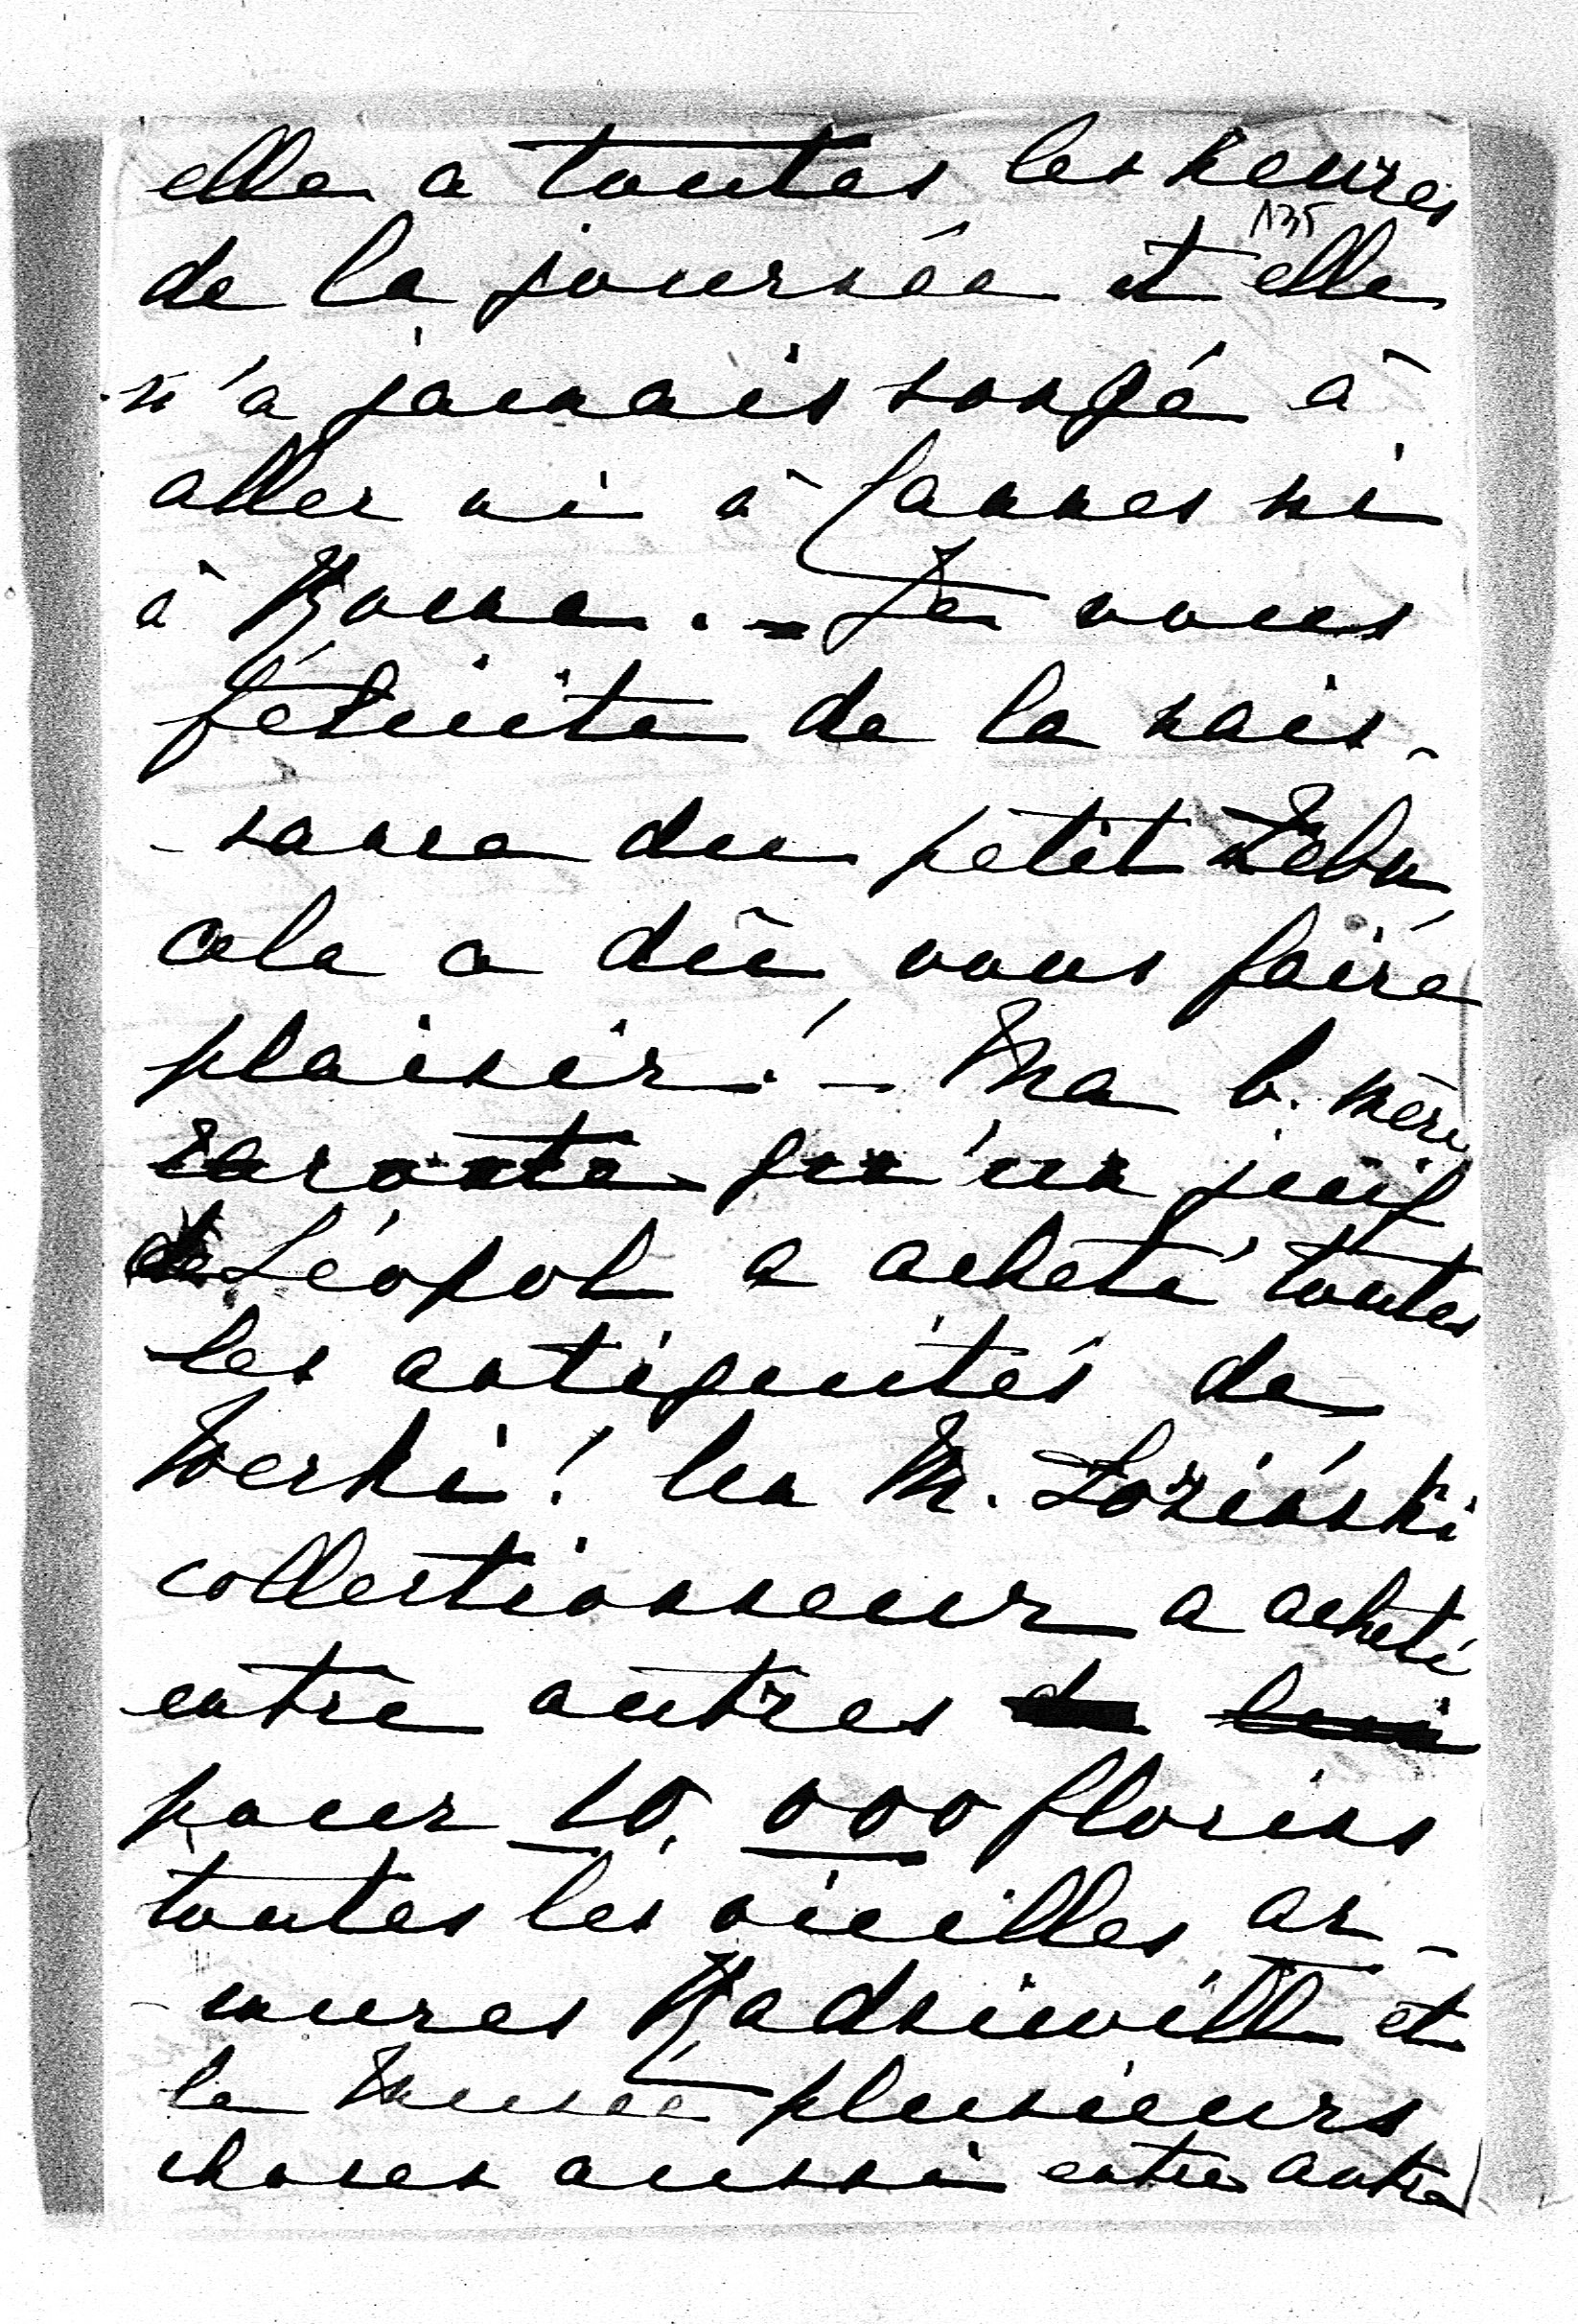 elle a toutes les heures
135
de la journée et elle
n'a jamais songé à
aller ni à Cannes ni
à Rome. – Je vous
félicite de la nais-
-sance du petit Zebu
cela a dû vous faire
plaisir! – Ma b. mère
raconte qu'un juif
de Léopol a acheté toutes
les antiquités de
Werki! Un M. Loziński
collectionneur a acheté
entre autres
pour 10.000 florins
toutes les vieilles ar-
-mures Radziwill et
le Musée plusieurs
choses aussi entre autre